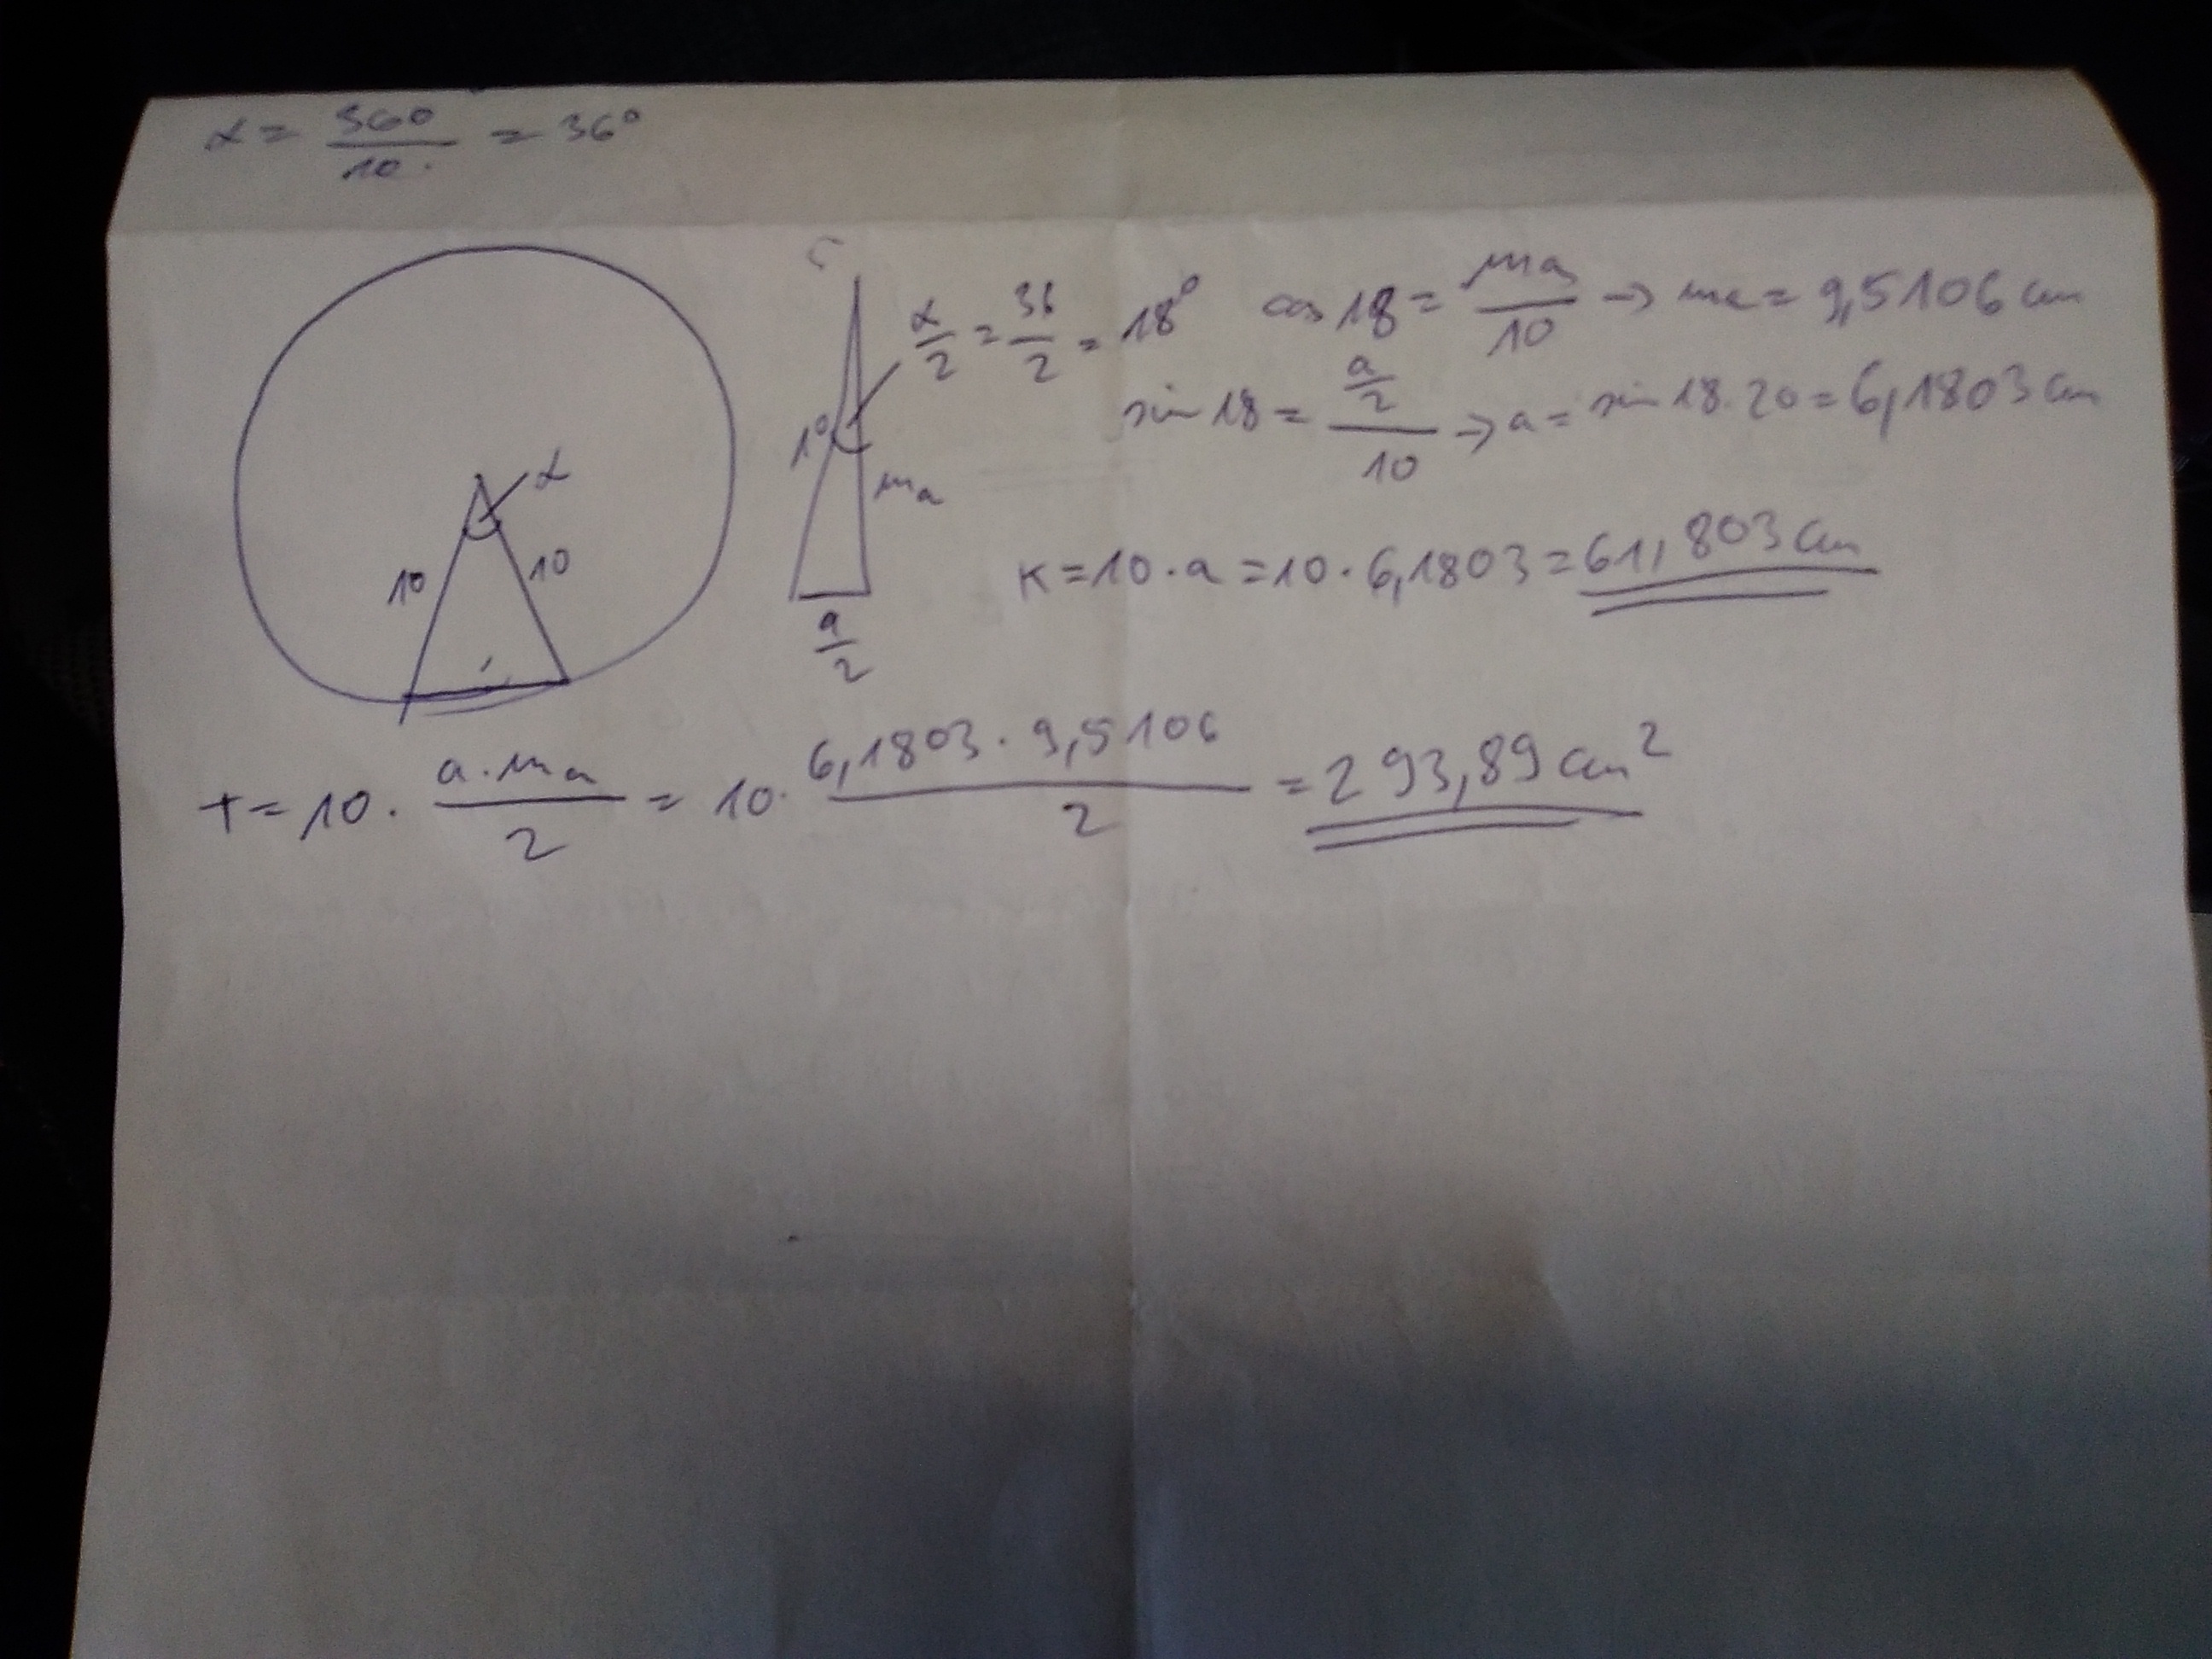 α = 360/10 = 36°
α
10
10
α/2 = 36/2 = 18°
10
ma
a/2
cos 18 = ma/10 → ma = 9,5106 cm
sin 18 = (a/2)/10 → a = sin 18 · 20 = 6,1803 cm
K = 10 · a = 10 · 6,1803 = 61,803 cm
T = 10 · (a · ma)/2 = 10 · (6,1803 · 9,5106)/2 = 293,89 cm²